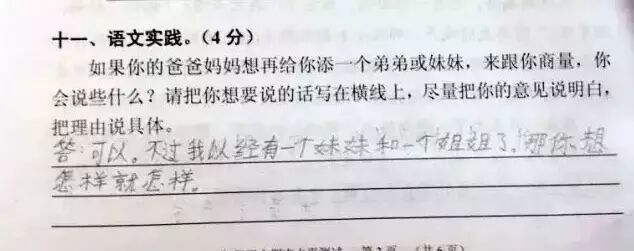 十一、语文实践。（4分）
如果你的爸爸妈妈想再给你添一个弟弟或妹妹，来跟你商量，你
会说些什么？请把你想要说的话写在横线上，尽量把你的意见说明白，
把理由说具体。
答：可以。不过我以经有一个妹妹和一个姐姐了，那你想
怎样就怎样。
第2页 （共6页）